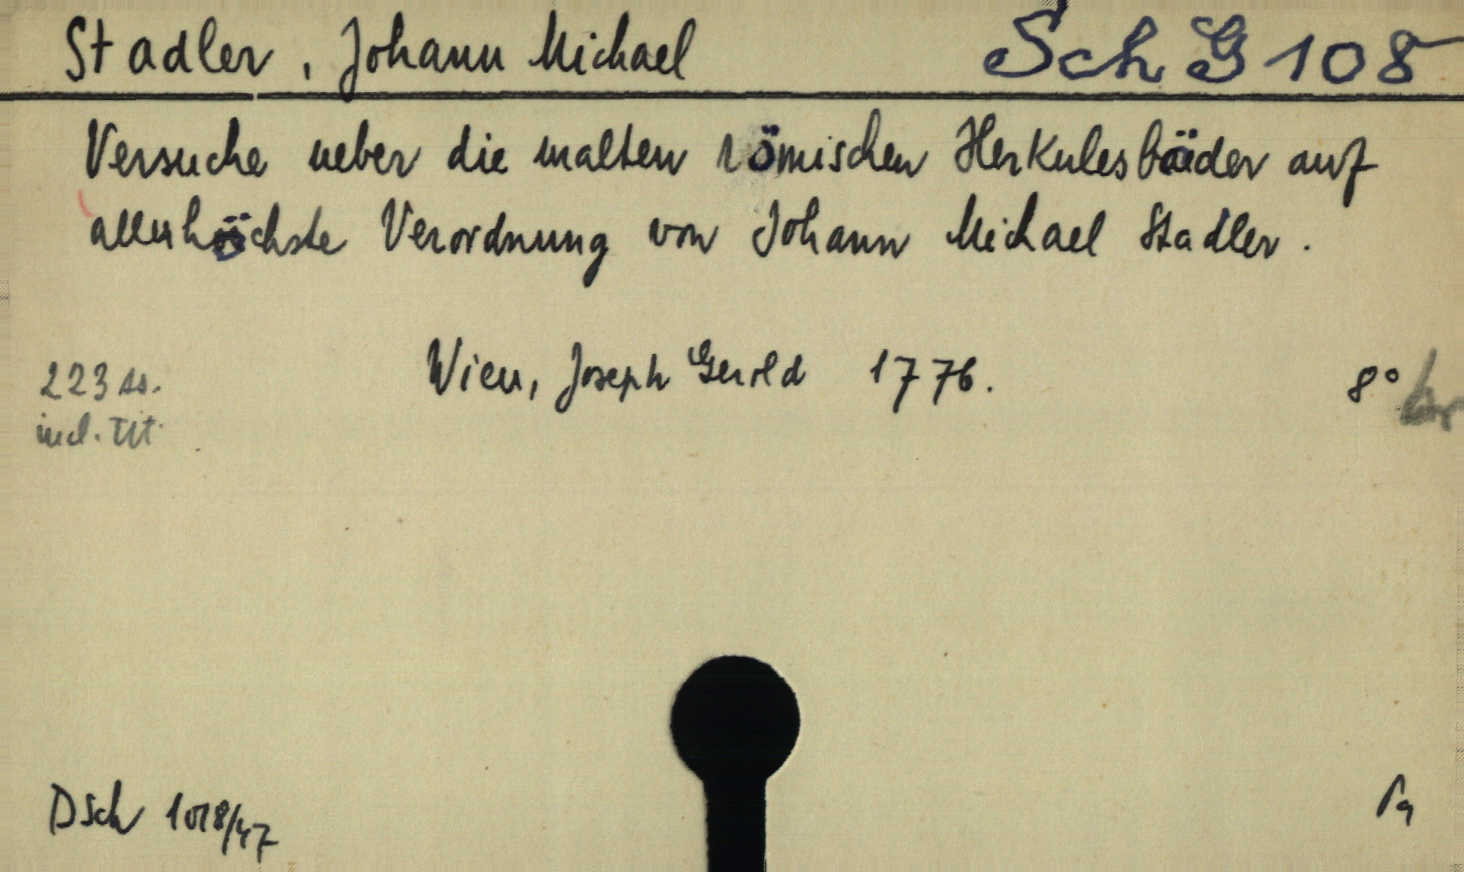 Stadler, Johann Michael Sch G 108
Versuche ueber die uralten römischen Herkulesbäder auf
allerhöchste Verordnung von Johann Michael Stadler.
Wien, Joseph Gerold 1776. 8°
223 ss.
incl. Tit.
DSch 1018/47